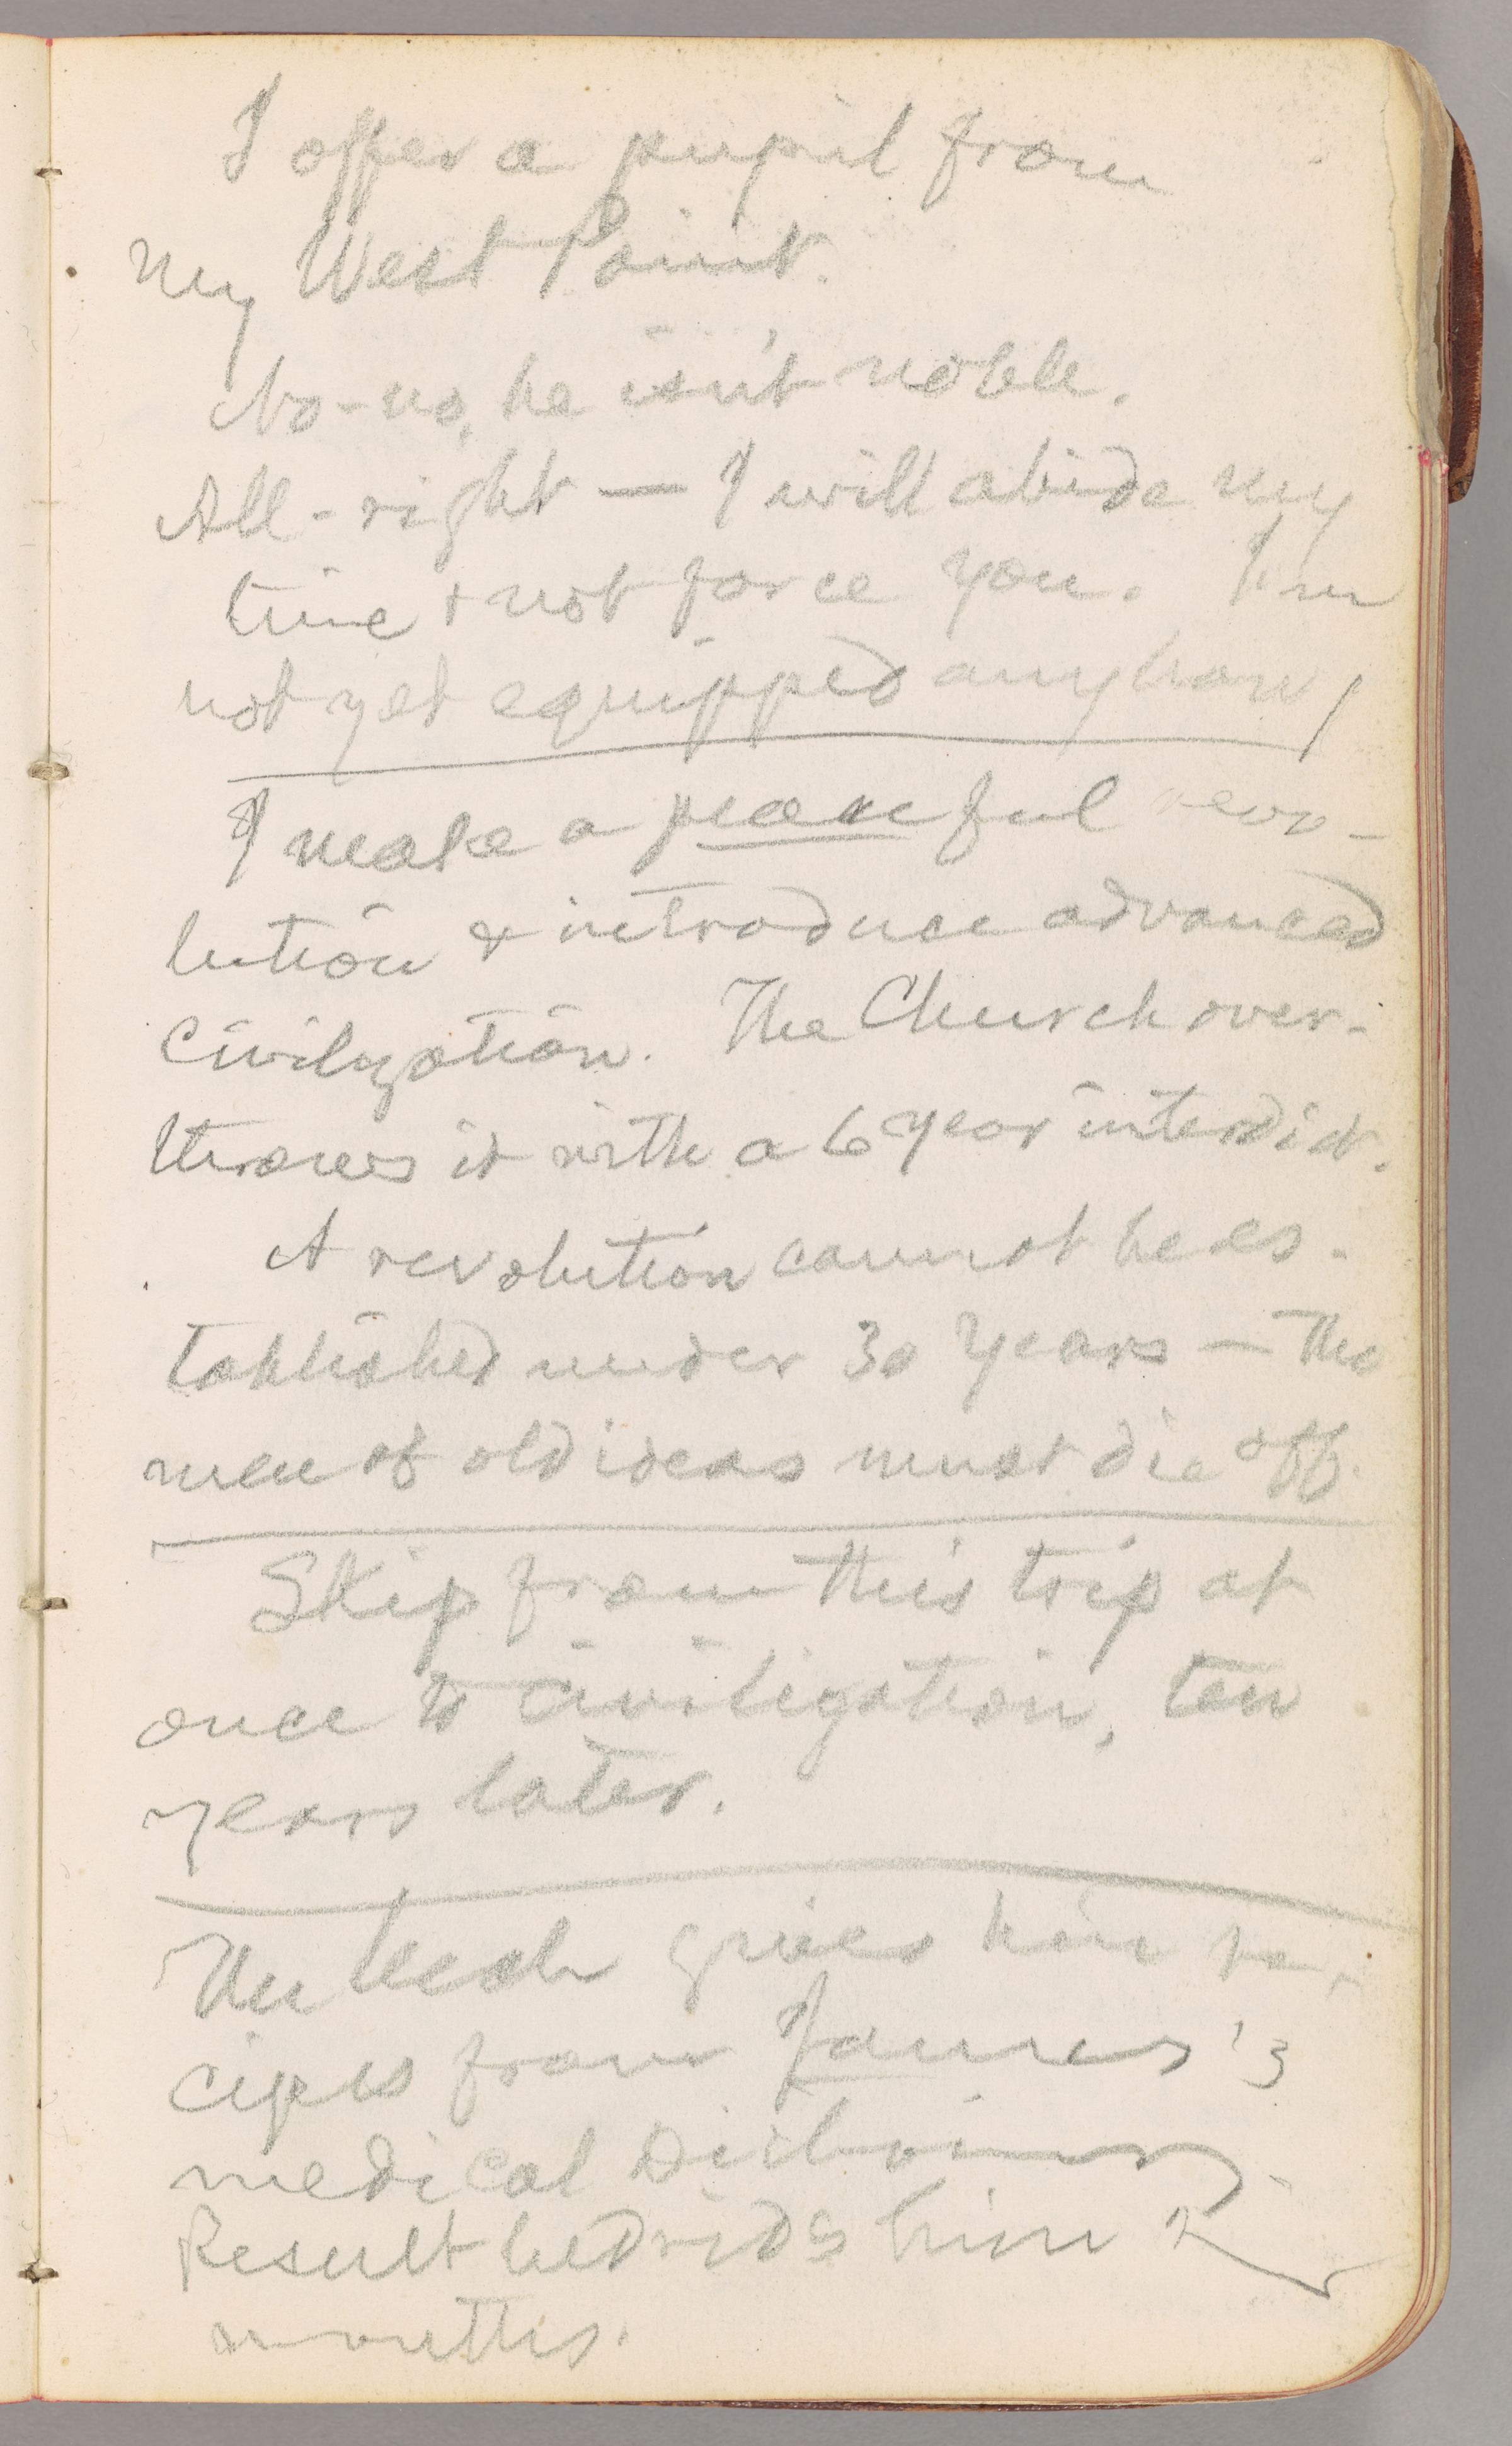 I offer a pupil from
my West Point.
No-no, he isn't noble.
All-right — I will abide my
time & not force you. I'm
not yet equipped anyhow/
I make a peaceful revo-
lution & introduce advanced
civilization. The Church over-
throws it with a 6 year interdict.
A revolution cannot be es-
tablished under 30 years — the
men of old ideas must die off.
Skip from this trip at
once to civilization, ten
years later.
The leech gives him re-
cipes from James's
medical Dictionary.
Result bedrids him 2
months.